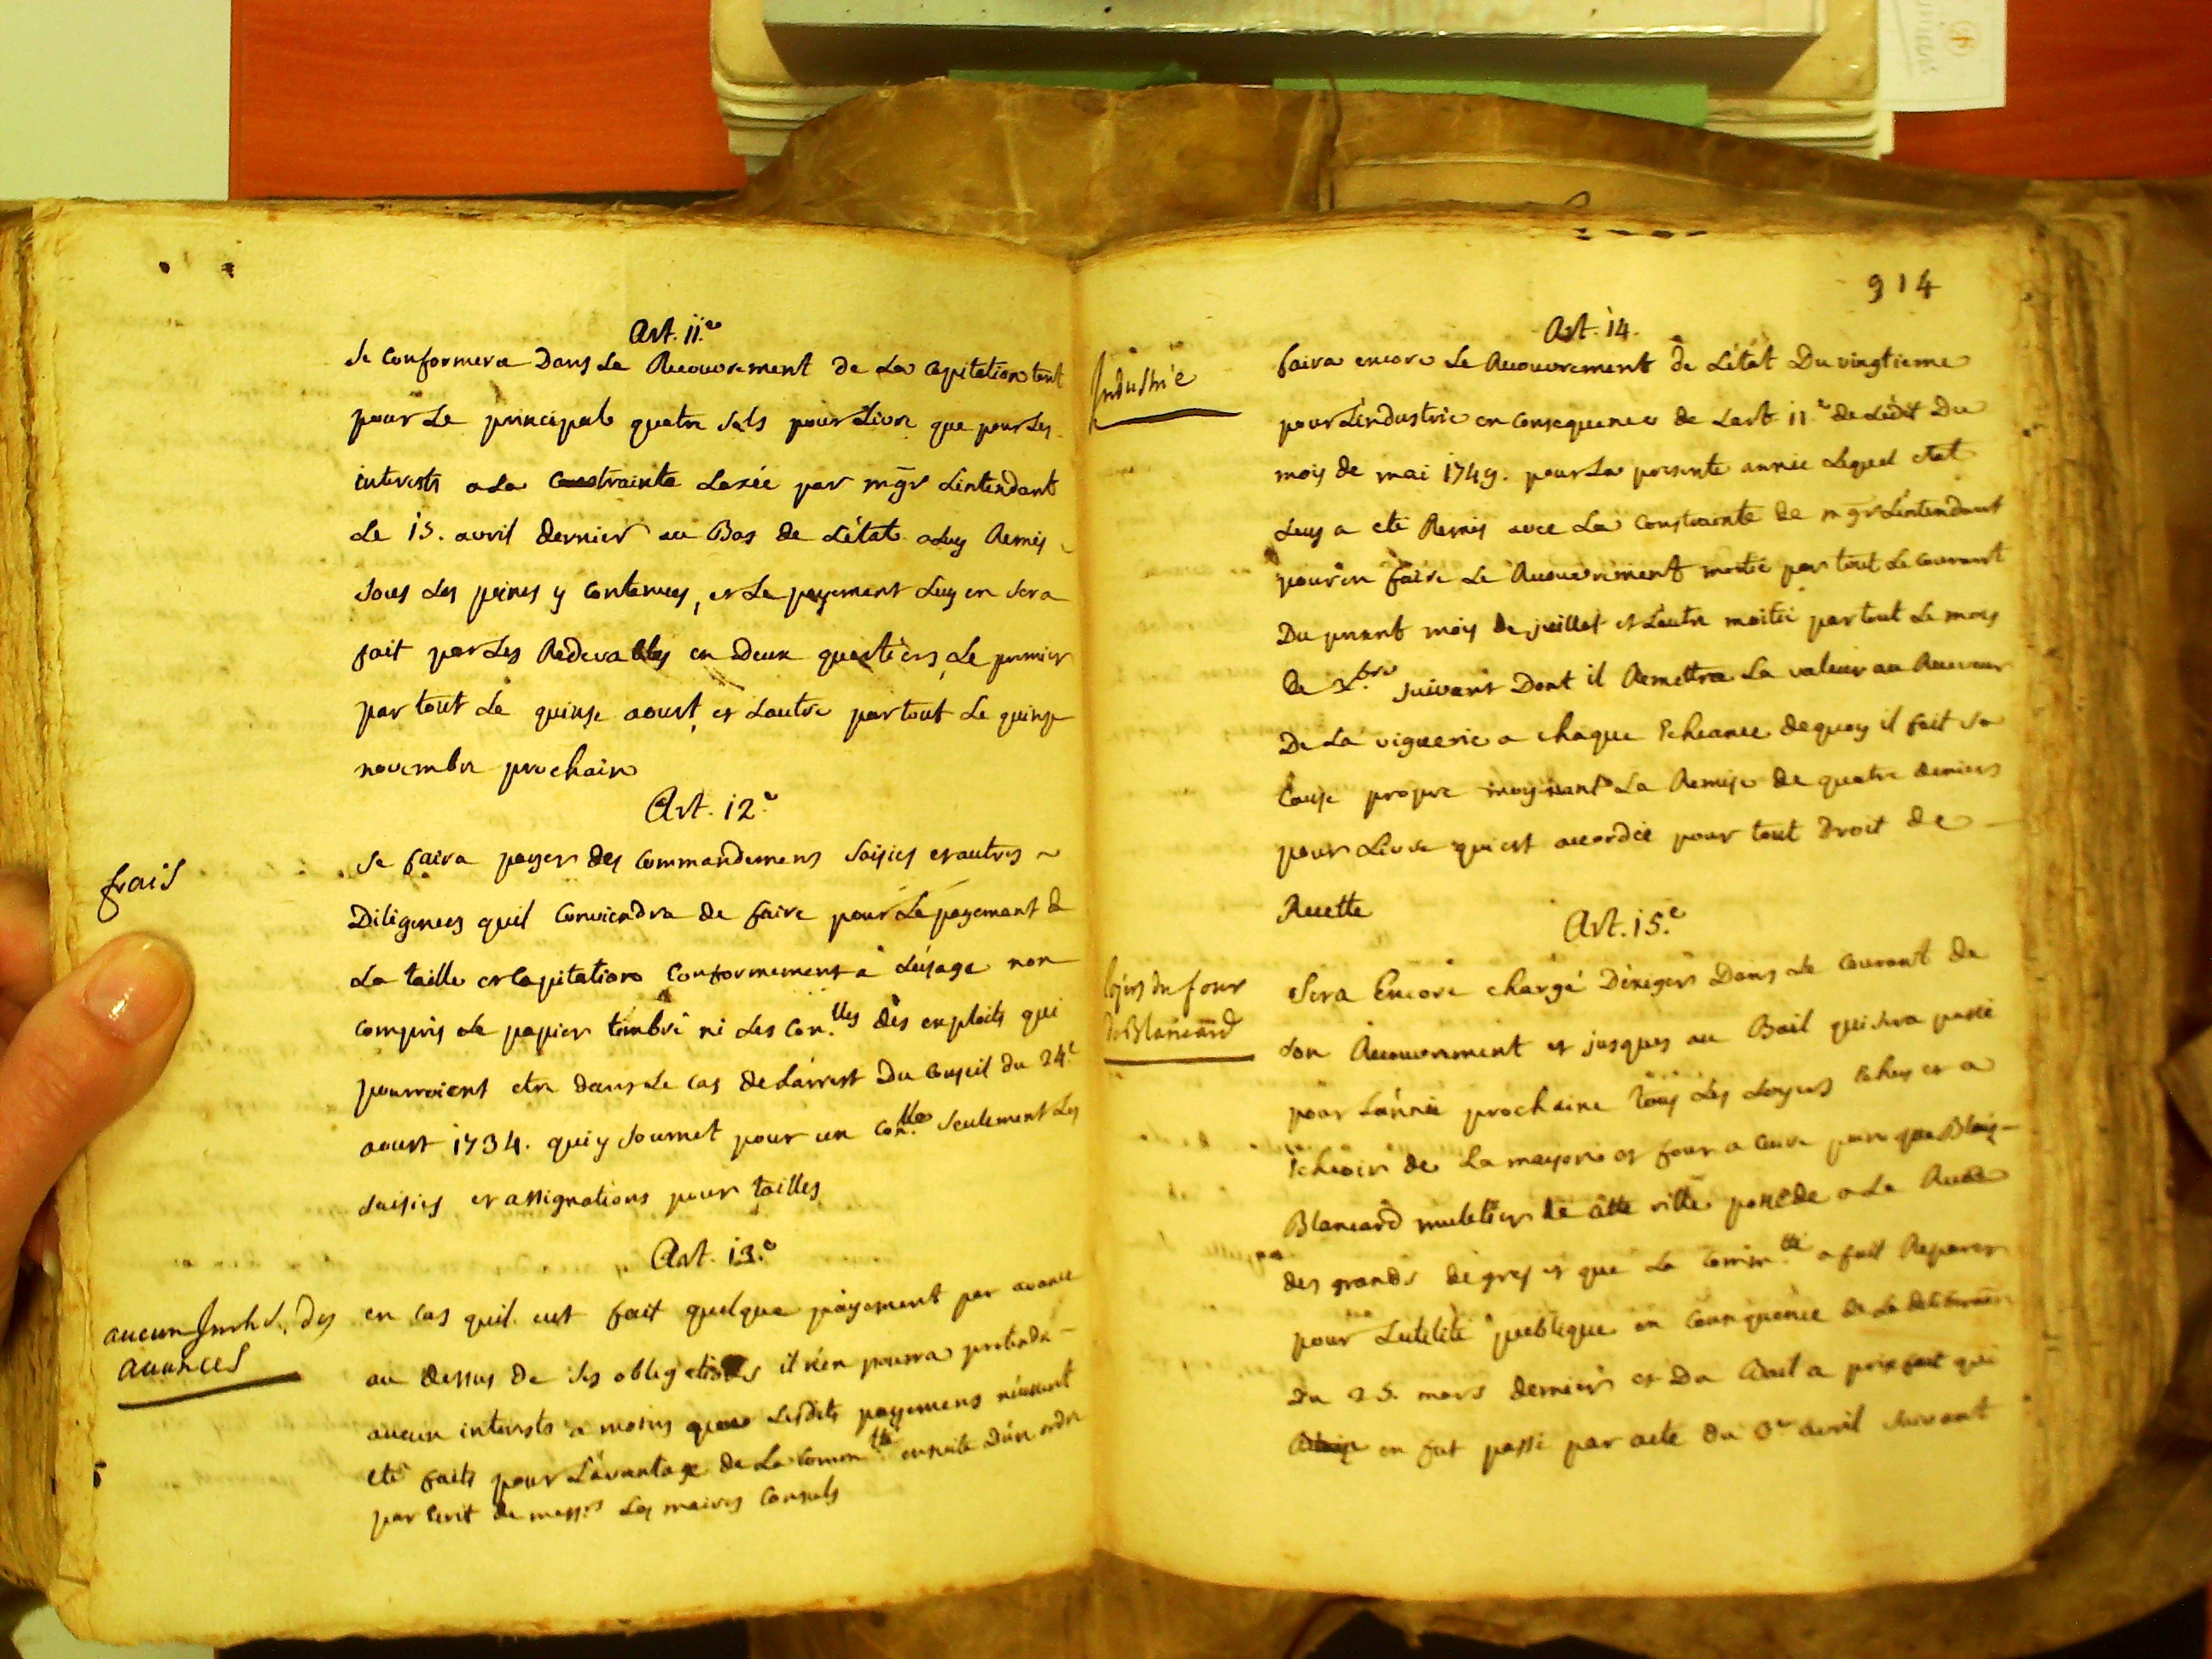 Art. 11.e
se conformera dans le Recouvrement de la capitation tant
pour le principal quatre sols pour Livre que pour les
interests a la Constrainte laxée par mgr Lintendant
Le 15. avril dernier au Bas de L'état a luy Remis
sous les peines y contenues, et le payement luy en sera
fait par les Redevables en deux quartiers, le premier
par tout le quinse aoust, et lautre par tout le quinse
novembre prochain
Art. 12.e
frais
se faira payer des commandemens saisies et autres
Diligences quil conviendra de faire pour Le payement de
La taille et Capitation Conformement a L'usage non
compris le papier timbré ni les con.lles des exploits qui
pourroient etre dans le cas de L'arrest du conseil du 24.e
aoust 1734. qui y soumet pour un con.lle seulement les
saisies et assignations pour tailles
Art. 13.e
aucun des
avances
en cas quil eut fait quelque payement par avance
au dessus de ses obligations il n'en pourra pretendre
aucun interests a moins que lesdits payemens n'eussent
eté faits pour L'avantage de La Comm.té ensuite d'un ordre
par Ecrit de mess.rs Les maires Consuls
914
Art. 14.
Industrie
faira encore Le Recouvrement de L'état Du vingtieme
pour L'industrie en consequence de Lart 11.e de L'edit Du
mois de mai 1749. pour La presente année Lequel etat
Luy a eté Remis avec La Constrainte de mgr L'intendant
pour en faire Le Recouvrement moitié par tout Le courant
Du present mois de juillet et L'autre moitié par tout Le mois
de X.bre suivant Dont il Remettra La valeur au Receveur
De La viguerie a chaque Echeance de quoy il fait sa
Cause propre moyenant La Remise de quatre deniers
pour Livre qui est accordée pour tout Droit de
Recette
Art. 15.e
loyers du four
de Blancard
Sera Encore chargé D'exiger Dans Le Courant de
son Recouvrement et jusques au Bail qui sera passé
pour L'année prochaine Tous Les Loyers Echus et a
Echeoir de La mayson et four a cuire pain que Blaize
Blancard muletier de cette ville possède a La Rue
des grands degres et que La Comm.té a fait Reparer
pour Lutilité publique en Consequence de La deliberation
Du 25. mars dernier et Du Bail a prixfait qui
en fut passé par acte du avril suivant